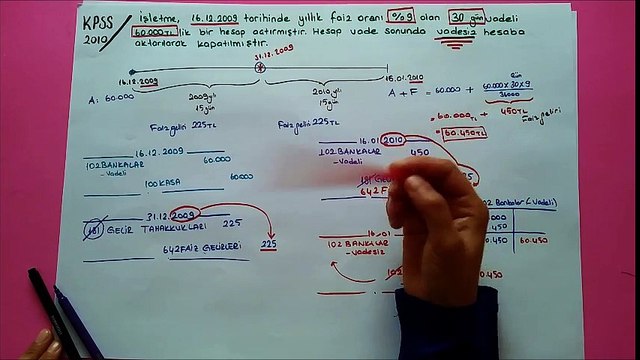 KPSS
2010
İşletme, 16.12.2009 tarihinde yıllık faiz oranı %9 olan 30 gün vadeli
60.000TL lik bir hesap açtırmıştır. Hesap vade sonunda vadesiz hesaba
aktarılarak kapatılmıştır.
31.12.2009
16.12.2009
15.01.2010
A: 60.000
2009 yılı
15 gün
2010 yılı
15 gün
A + F = 60.000 + 60.000x30x9
36000
gün
= 60.000TL + 450TL
Faiz geliri
= 60.450TL
Faiz geliri 225TL
Faiz geliri 225TL
16.12.2009
102 BANKALAR 60.000
-Vadeli
100 KASA 60.000
31.12.2009
181 GELİR TAHAKKUKLARI 225
642 FAİZ GELİRLERİ 225
16.01.2010
102 BANKALAR 450
-Vadeli
181
642
16.01
102 BANKALAR
-Vadesiz
Bankalar (Vadeli)
450
60.450